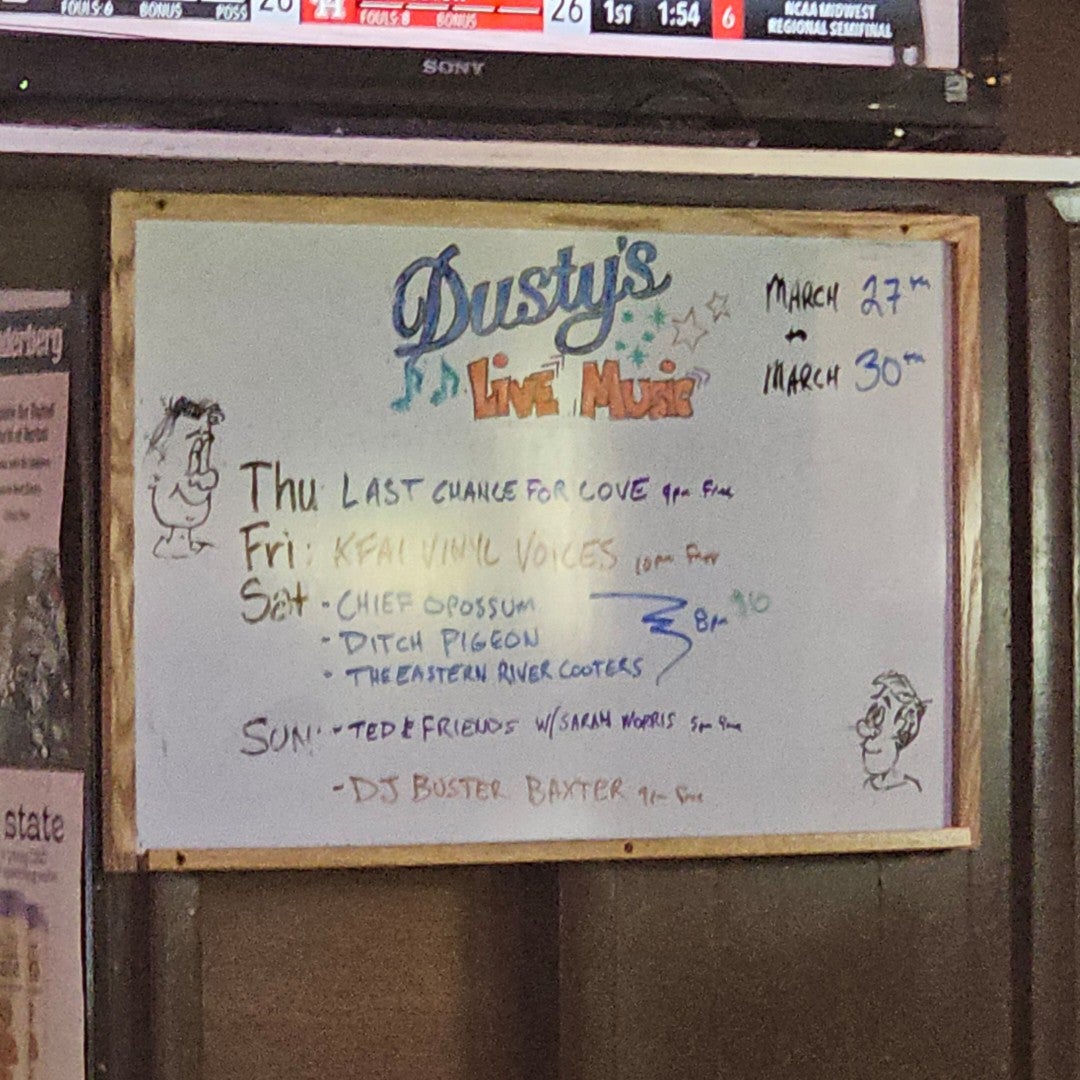 FOULS: 6 BONUS POSS 26 FOULS: 8 BONUS 26 1ST 1:54 6 NCAA MIDWEST
REGIONAL SEMIFINAL
SONY
Dusty's
Live Music
MARCH 27th
to
MARCH 30th
Thu LAST CHANCE FOR LOVE 9pm Free
Fri: KFAI VINYL VOICES 10pm Free
Sat - CHIEF OPOSSUM
- DITCH PIGEON
- THE EASTERN RIVER COOTERS
8pm $10
SUN: - TED & FRIENDS W/SARAH MORRIS 5pm
- DJ BUSTER BAXTER 9pm Free
state